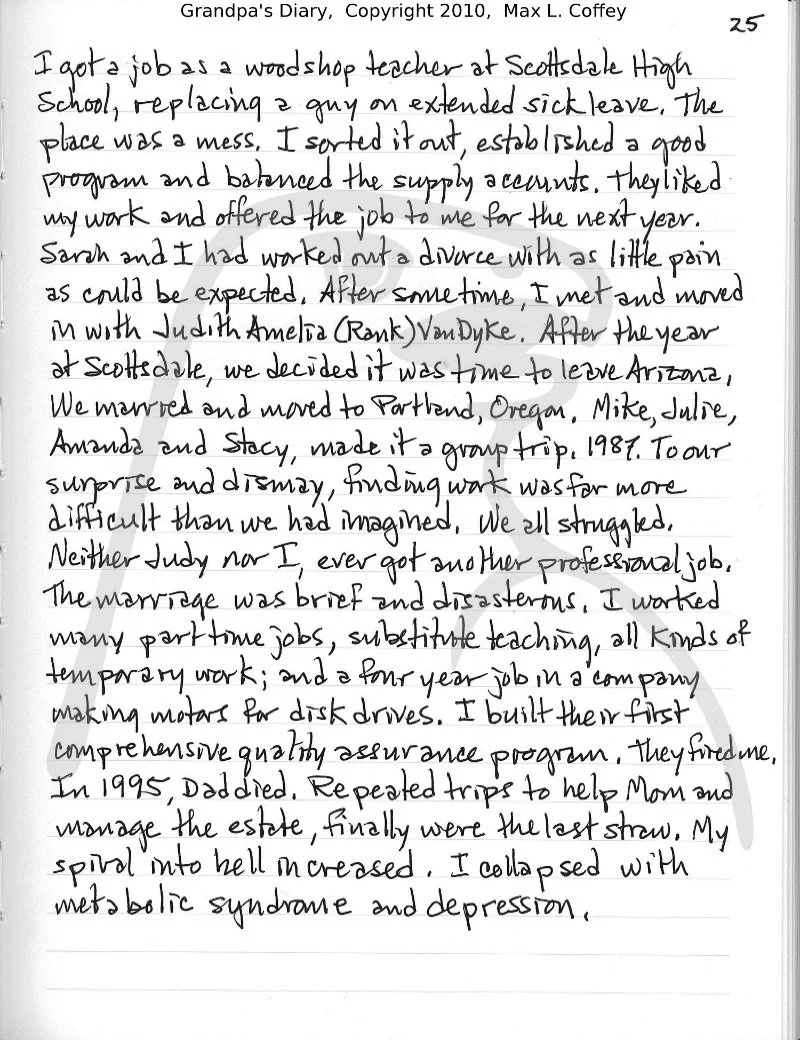 Grandpa's Diary, Copyright 2010, Max L. Coffey
25
I got a job as a woodshop teacher at Scottsdale High
School, replacing a guy on extended sick leave. The
place was a mess. I sorted it out, established a good
program and balanced the supply accounts. They liked
my work and offered the job to me for the next year.
Sarah and I had worked out a divorce with as little pain
as could be expected. After some time, I met and moved
in with Judith Amelia (Rank) VanDyke. After the year
at Scottsdale, we decided it was time to leave Arizona,
We married and moved to Portland, Oregon. Mike, Julie,
Amanda and Stacy, made it a group trip. 1987. To our
surprise and dismay, finding work was far more
difficult than we had imagined. We all struggled.
Neither Judy nor I, ever got another professional job.
The marriage was brief and disasterous. I worked
many part time jobs, substitute teaching, all kinds of
temporary work; and a four year job in a company
making motors for disk drives. I built their first
comprehensive quality assurance program. They fired me.
In 1995, Dad died. Repeated trips to help Mom and
manage the estate, finally were the last straw. My
spiral into hell increased. I collapsed with
metabolic syndrome and depression.